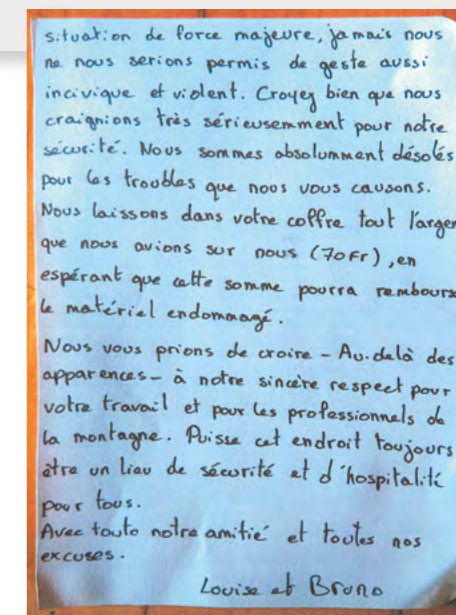 situation de force majeure, jamais nous
ne nous serions permis de geste aussi
incivique et violent. Croyez bien que nous
craignions très sérieusemment pour notre
sécurité. Nous sommes absolumment désolés
pour les troubles que nous vous causons.
Nous laissons dans votre coffre tout l'argen
que nous avions sur nous (70Fr), en
espérant que cette somme pourra rembourse
le matériel endommagé.
Nous vous prions de croire - Au-delà des
apparences - à notre sincère respect pour
votre travail et pour les professionnels de
la montagne. Puisse cet endroit toujours
être un lieu de sécurité et d'hospitalité
pour tous.
Avec toute notre amitié et toutes nos
excuses.
Louise et Bruno